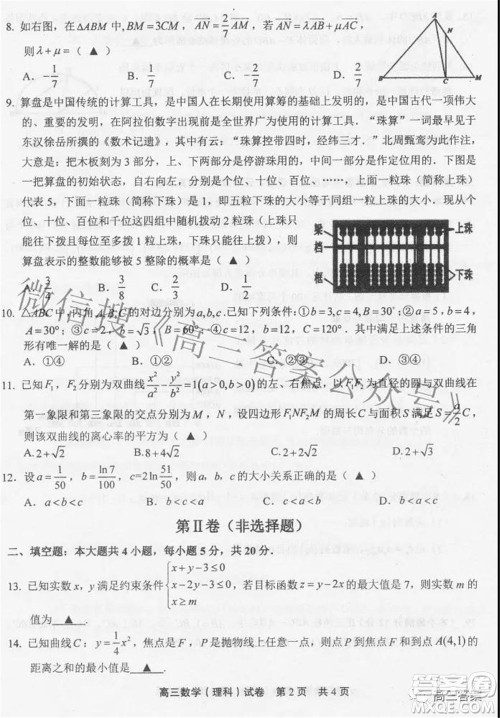 8. 如右图，在△ABM 中, BM=3CM，AN=2/7 AM，若 AN=λAB+μAC，
则λ+μ=（ ▲ ）
A. -1/7 B. 1/7 C. -2/7 D. 2/7
A
N
B C M
9. 算盘是中国传统的计算工具，是中国人在长期使用算筹的基础上发明的，是中国古代一项伟
大的、重要的发明，在阿拉伯数字出现前是全世界广为使用的计算工具．“珠算”一词最早见于
东汉徐岳所撰的《数术记遗》，其中有云：“珠算控带四时，经纬三才．”北周甄鸾为此作注，
大意是：把木板刻为3部分，上、下两部分是停游珠用的，中间一部分是作定位用的．下图
是一把算盘的初始状态，自右向左，分别是个位、十位、百位⋯，上面一粒珠（简称上珠）
代表5，下面一粒珠（简称下珠）是1，即五粒下珠的大小等于同组一粒上珠的大小．现在从
个位、十位、百位和千位这四组中随机拨动2粒珠（上珠只
能往下拨且每位至多拨1粒上珠，下珠只能往上拨），则
算盘表示的整数能够被5整除的概率是（ ▲ ）
A. 3/4 B. 2/7 C. 1/2 D.
梁 上珠
档
框 下珠
10. △ABC 中，角 A,B,C 的对边分别为a,b,c.已知下列条件：①b=3,c=4,B=30°；②a=5,b=8,
A=30°；③c=6,b=3√3,B=60°；④c=9,b=12,C=60°．其中满足上述条件的三角
形有唯一解的是（ ▲ ）
A. ①④ B. ①② C. ②③ D. ③④
11. 已知F₁，F₂分别为双曲线x²/a²-y²/b²=1(a>0,b>0)的左、右焦点，以F₁F₂为直径的圆与双曲线在
第一象限和第三象限的交点分别为M，N，设四边形F₁NF₂M 的周长与面积S满足
则该双曲线的离心率的平方为（ ▲ ）
A. 2+√2 B. 8+4√2 C. 2+√5 D. 2+√3
12. 设a=1/50，b=ln7/100，c=2ln51/50，则a，b，c的大小关系正确的是（ ▲ ）
A. a<b<c B. a<c<b C. b<c<a D. b<a<c
第Ⅱ卷（非选择题）
二、填空题：本大题共4小题，每小题5分，共20分．
13. 已知实数x，y满足约束条件{x+y-3≤0 x-2y-3≤0 若目标函数z=x-y的最大值是7，则实数m的
值为 ▲ ．
14. 已知曲线C：y=1/4 x²，焦点是F，P是抛物线上任意一点，则点P到焦点F和到点A(4,1)的
距离之和的最小值是 ▲ ．
高三数学（理科）试卷 第2页 共4页
微信搜《高三答案公众号》
高三答案